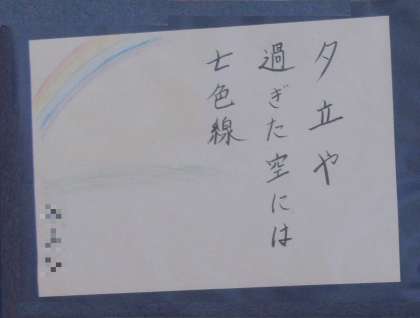 夕立や
過ぎた空には
七色線